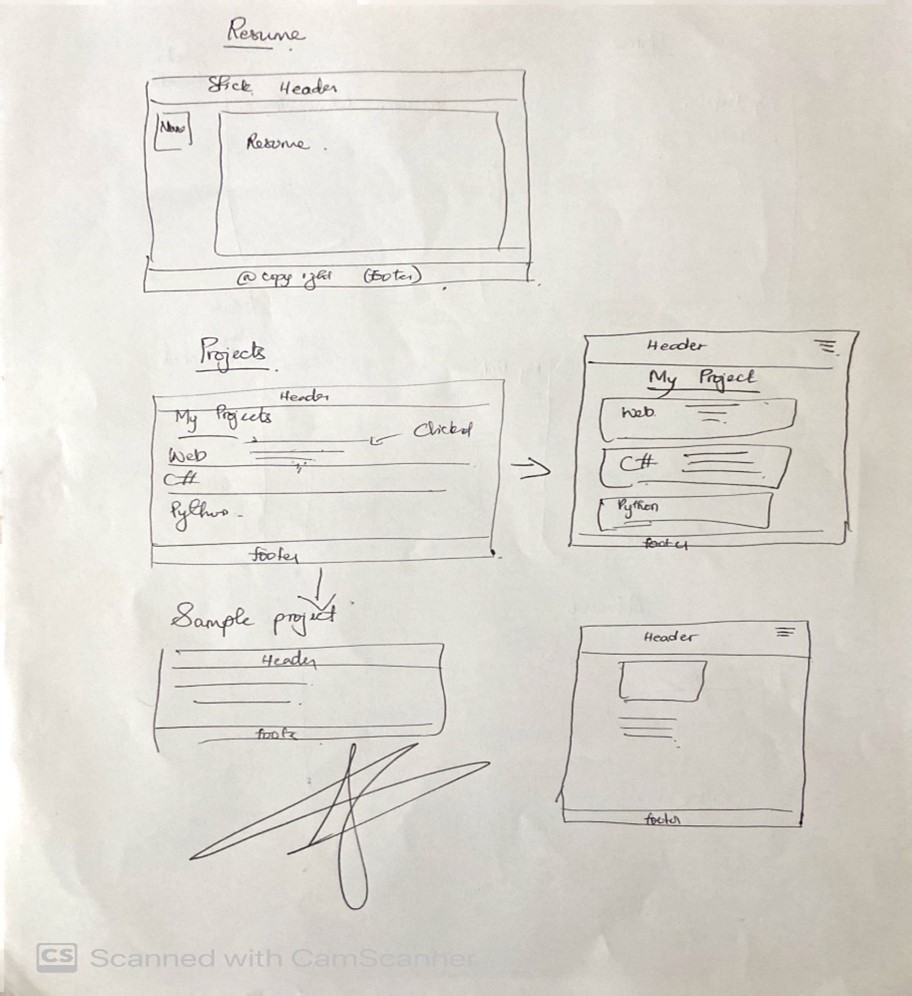 Resume
Stick Header
Nav
Resume.
@ copyright (footer)
Projects
Header
My Projects
Clicked
Web
C#
Python
footer
Header
My Project
Web
C#
Python
footer
Sample project
Header
Header
footer
CS Scanned with CamScanner